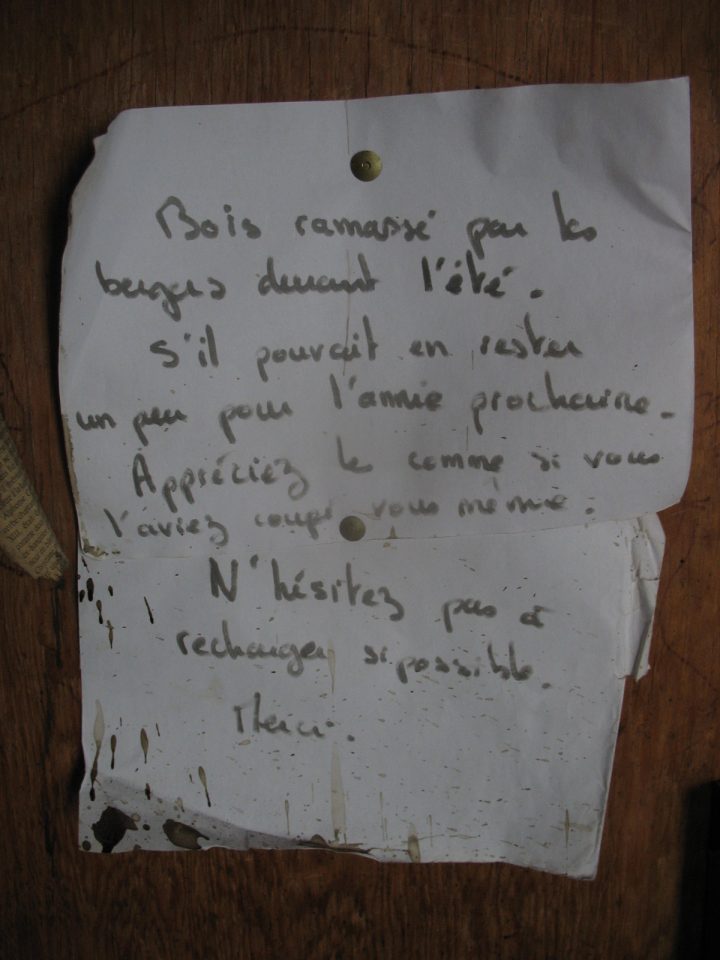 Bois ramassé par les
bergers durant l'été.
S'il pouvait en rester
un peu pour l'année prochaine.
Appréciez le comme si vous
l'aviez coupé vous même.
N'hésitez pas à
recharger si possible.
Merci.